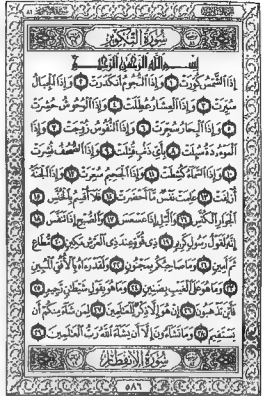 سُورَةُ التَّكْوِيرِ
بِسْمِ اللَّهِ الرَّحْمَٰنِ الرَّحِيمِ
إِذَا الشَّمْسُ كُوِّرَتْ ١ وَإِذَا النُّجُومُ انكَدَرَتْ ٢ وَإِذَا الْجِبَالُ
سُيِّرَتْ ٣ وَإِذَا الْعِشَارُ عُطِّلَتْ ٤ وَإِذَا الْوُحُوشُ حُشِرَتْ
٥ وَإِذَا الْبِحَارُ سُجِّرَتْ ٦ وَإِذَا النُّفُوسُ زُوِّجَتْ ٧ وَإِذَا
الْمَوْءُودَةُ سُئِلَتْ ٨ بِأَيِّ ذَنبٍ قُتِلَتْ ٩ وَإِذَا الصُّحُفُ نُشِرَتْ
١٠ وَإِذَا السَّمَاءُ كُشِطَتْ ١١ وَإِذَا الْجَحِيمُ سُعِّرَتْ ١٢ وَإِذَا الْجَنَّةُ
أُزْلِفَتْ ١٣ عَلِمَتْ نَفْسٌ مَّا أَحْضَرَتْ ١٤ فَلَا أُقْسِمُ بِالْخُنَّسِ ١٥
الْجَوَارِ الْكُنَّسِ ١٦ وَاللَّيْلِ إِذَا عَسْعَسَ ١٧ وَالصُّبْحِ إِذَا تَنَفَّسَ ١٨
إِنَّهُ لَقَوْلُ رَسُولٍ كَرِيمٍ ١٩ ذِي قُوَّةٍ عِندَ ذِي الْعَرْشِ مَكِينٍ ٢٠ مُّطَاعٍ
ثَمَّ أَمِينٍ ٢١ وَمَا صَاحِبُكُم بِمَجْنُونٍ ٢٢ وَلَقَدْ رَآهُ بِالْأُفُقِ الْمُبِينِ
٢٣ وَمَا هُوَ عَلَى الْغَيْبِ بِضَنِينٍ ٢٤ وَمَا هُوَ بِقَوْلِ شَيْطَانٍ رَّجِيمٍ ٢٥
فَأَيْنَ تَذْهَبُونَ ٢٦ إِنْ هُوَ إِلَّا ذِكْرٌ لِّلْعَالَمِينَ ٢٧ لِمَن شَاءَ مِنكُمْ أَن
يَسْتَقِيمَ ٢٨ وَمَا تَشَاءُونَ إِلَّا أَن يَشَاءَ اللَّهُ رَبُّ الْعَالَمِينَ ٢٩
سُورَةُ الْانفِطَارِ
٥٨٦